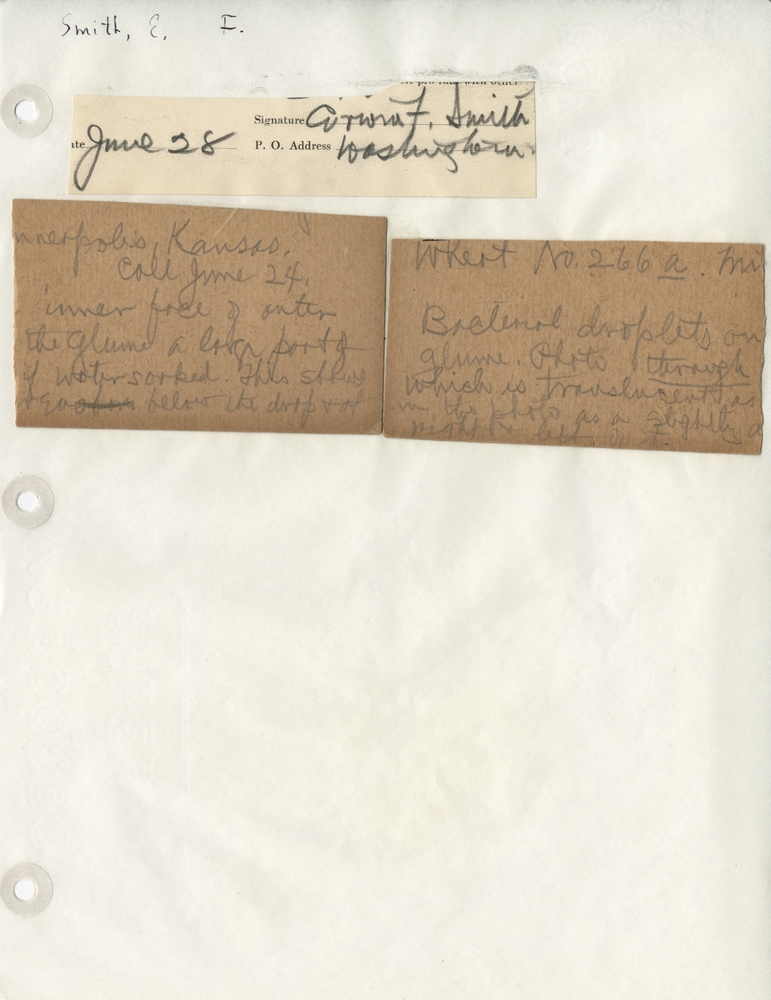 Smith, E. F.
Signature Erwin F. Smith
June 28 P. O. Address Washington.
nneapolis, Kansas.
Coll June 24.
inner face of outer
the glume a large part of
of water soaked. This shows
below the drop
Wheat No. 266 a. Mi
Bacterial droplets on
glume. Photo through
which is translucent as
in the photo as a slightly
right or left of it